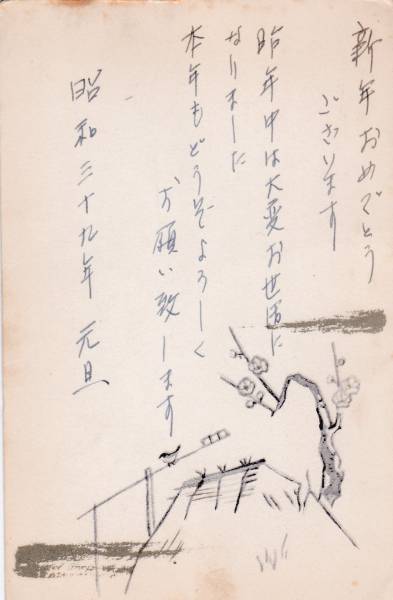 新年おめでとう
ございます
昨年中は大変お世話に
なりました
本年もどうぞよろしく
お願い致します
昭和三十九年 元旦